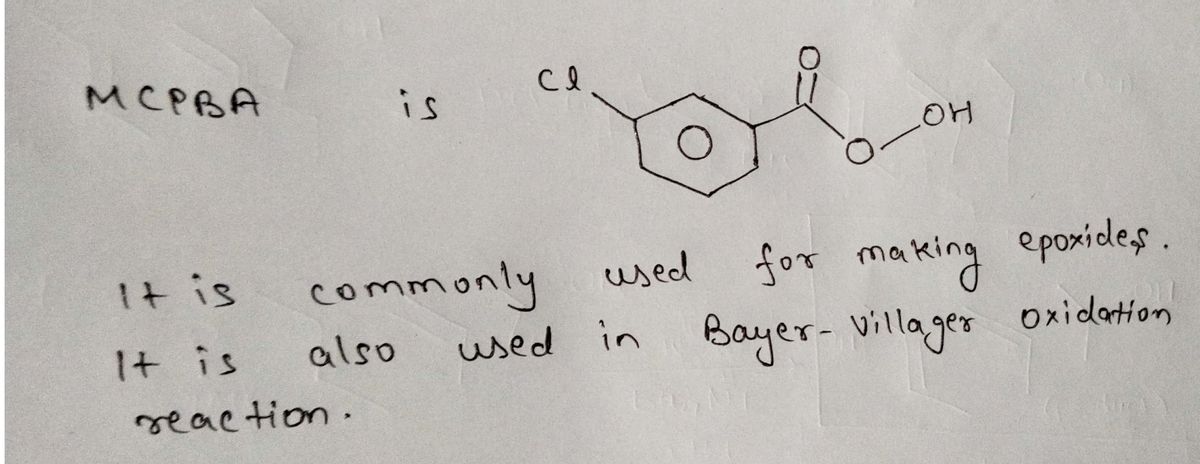 MCPBA is Cl O O OH
It is commonly used for making epoxides.
It is also used in Bayer-Villager oxidation
reaction.